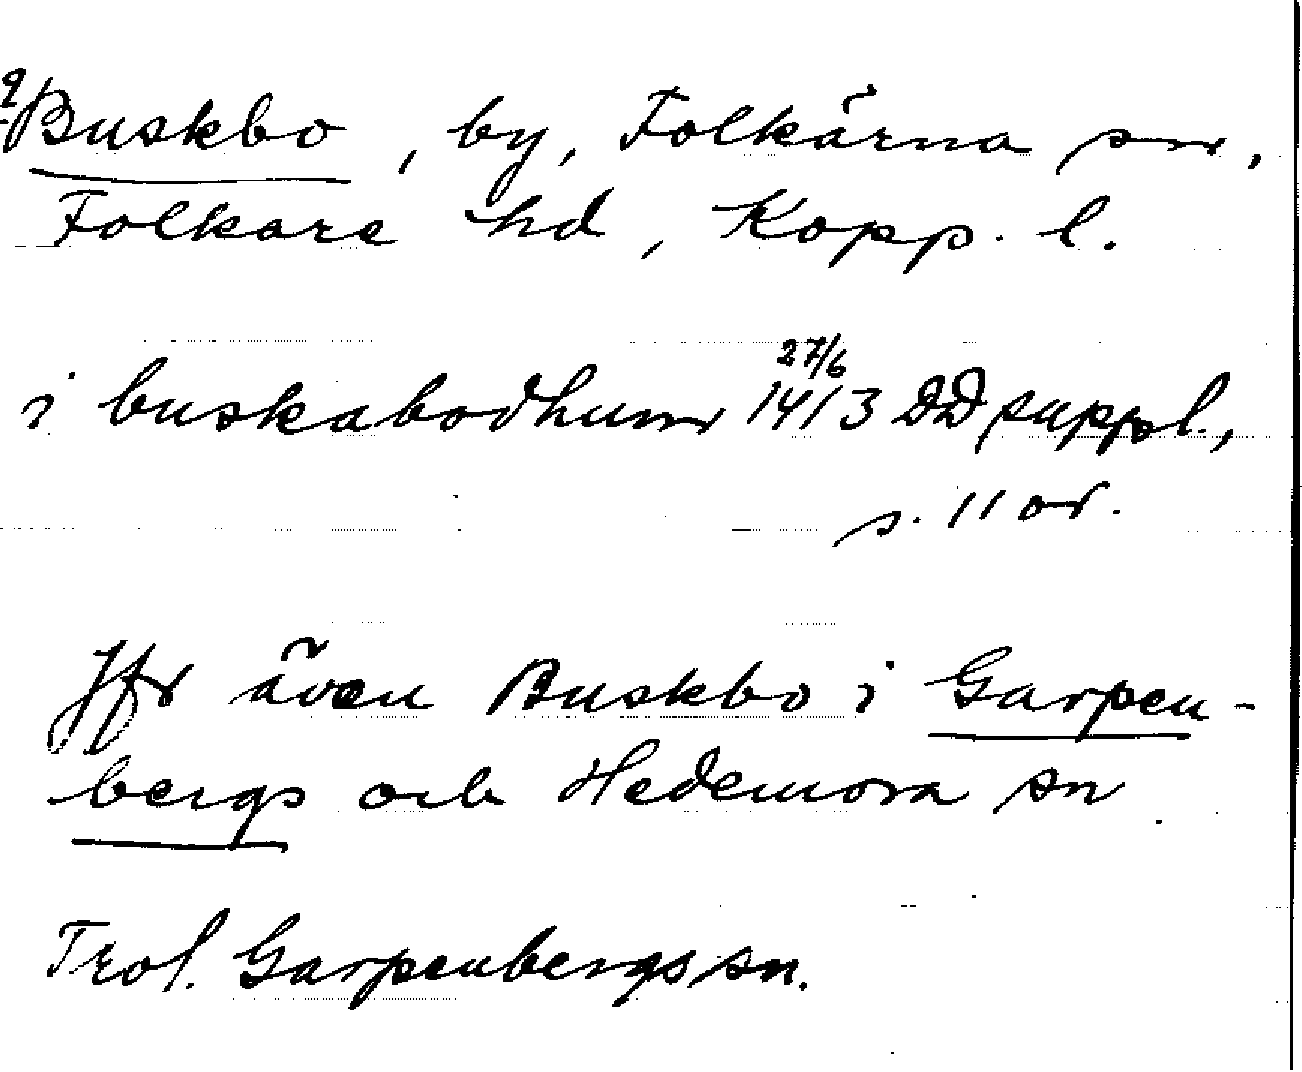 Buskbo, by, Folkärna sn,
Folkare hd, Kopp. l.
i buskabodhum 27/6 1413 DD suppl.,
s. 11 or.
Jfr även Buskbo i Garpen-
bergs och Hedemora sn
Trol. Garpenbergs sn.